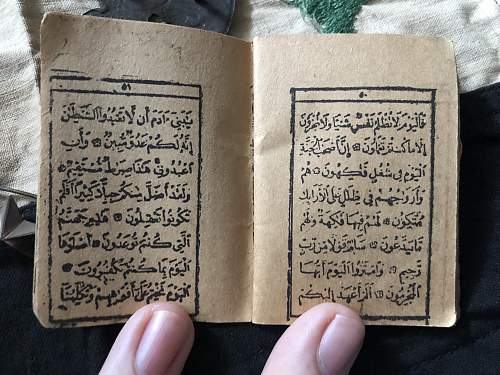 ٥٠
فَالْيَوْمَ لَا تُظْلَمُ نَفْسٌ شَيْئًا وَلَا تُجْزَوْنَ
إِلَّا مَا كُنْتُمْ تَعْمَلُونَ ۝ إِنَّ أَصْحَٰبَ الْجَنَّةِ
الْيَوْمَ فِي شُغُلٍ فَٰكِهُونَ ۝ هُمْ
وَأَزْوَٰجُهُمْ فِي ظِلَٰلٍ عَلَى الْأَرَائِكِ
مُتَّكِئُونَ ۝ لَهُمْ فِيهَا فَٰكِهَةٌ وَلَهُمْ
مَا يَدَّعُونَ ۝ سَلَٰمٌ قَوْلًا مِنْ رَبٍّ
رَحِيمٍ ۝ وَامْتَٰزُوا الْيَوْمَ أَيُّهَا
الْمُجْرِمُونَ ۝ أَلَمْ أَعْهَدْ إِلَيْكُمْ
٥١
يَٰبَنِي ءَادَمَ أَنْ لَا تَعْبُدُوا الشَّيْطَٰنَ
إِنَّهُ لَكُمْ عَدُوٌّ مُبِينٌ ۝ وَأَنِ
اعْبُدُونِي هَٰذَا صِرَٰطٌ مُسْتَقِيمٌ ۝
وَلَقَدْ أَضَلَّ مِنْكُمْ جِبِلًّا كَثِيرًا أَفَلَمْ
تَكُونُوا تَعْقِلُونَ ۝ هَٰذِهِ جَهَنَّمُ
الَّتِي كُنْتُمْ تُوعَدُونَ ۝ اصْلَوْهَا
الْيَوْمَ بِمَا كُنْتُمْ تَكْفُرُونَ ۝
الْيَوْمَ نَخْتِمُ عَلَى أَفْوَٰهِهِمْ وَتُكَلِّمُنَا